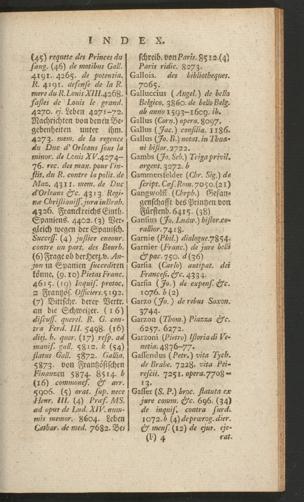 INDEX.
(45) requete des Princes du
sang. (46) de motibus Gall.
4191. 4265. de potentia.
R. 4191. defense de la R.
mere du R. Louis XIII. 4268.
fastes de Louis le grand.
4270. ej. Leben 4271-72
Nachrichten von deren Be-
gebenheiten unter ihm.
4273. mem. de la regence
du Duc d'Orleans sous la
minor. de Louis XV. 4274-
76. rec. des mem. pour l'in-
stit. du R. contre la polit. de
Maz. 4311. mem. de Duc
d'Orleans &c. 4313. Regi-
næ Christianiss. jura in Brab.
4326. Franckreichs Einth.
Spaniens. 4402. (3) Ver-
gleich wegen der Spanisch.
Success. (4) justice encour.
contre un port. des Bourb.
(6) Frage ob der Herz. v. An-
jou in Spanien succediren
könne. (9. 10) Pietas Franc.
4615. (10) Inquis. protoc.
2 Französ. Officiers. 5192.
(7) Bittschr. derer Vertr.
an die Schweitzer. (16)
discuss. querel. R. G. con-
tra Ferd. III. 5498. (16)
disj. h. quær. (17) resp. ad
manif. gall. 5812. k (54)
status Gall. 5872. Gallia.
5873. von Französischen
Finanzen 5874. 8514. b
(16) commones. & arr.
5906. (5) orat. sup. nece
Henr. III. (4) Præf. MS.
ad opus de Lud. XIV. num-
mis memor. 8604. Leben
Cathar. de med. 7682. Be-
schreib. von Paris. 8512. (4)
Paris ridic. 8273.
Gallois. des bibliotheques.
7065.
Galluccius (Angel.) de bello
Belgico. 3860. de bello Belg.
ab anno 1593-1609. ib.
Gallus (Corn.) opera. 8097.
Gallus (Jac.) consilia. 1186.
Gallus (Jo. B.) notat. in Thua-
ni histor. 2722.
Gambs (Jo. Seb.) Triga privil.
argent. 3272. b
Gammersfelder (Chr. Sig.) de
script. Cæs. Rom. 7050. (21)
Gangwolff (Chrph.) Gefan-
genschafft des Printzen von
Fürstenb. 6415. (38)
Garnier (Phil.) dialogue. 7854.
Garnier (Franc.) de jure belli
& pac. 750. d (36)
Garsia (Carlo) antipat. dei
Francesi. &c. 4334.
Garsia (Jo.) de expens. &c.
1076. b (2)
Garzo (Jo.) de rebus Saxon.
3744.
Garzon (Thom.) Piazza &c.
6257. 6272.
Garzoni (Pietro) Istoria di Ve-
netia. 4876-77.
Gassendus (Petr.) vita Tych.
de Brahe. 7228. vita Pei-
rescii. 7251. opera. 7708-
13.
Gasser (S. P.) broc. statuta ex
jure comm. &c. 696. (34)
de inquis. contra surd.
1072. b (4) de prærog. dier.
& mens. (12) de ejur. eje-
(F) 4
erat.